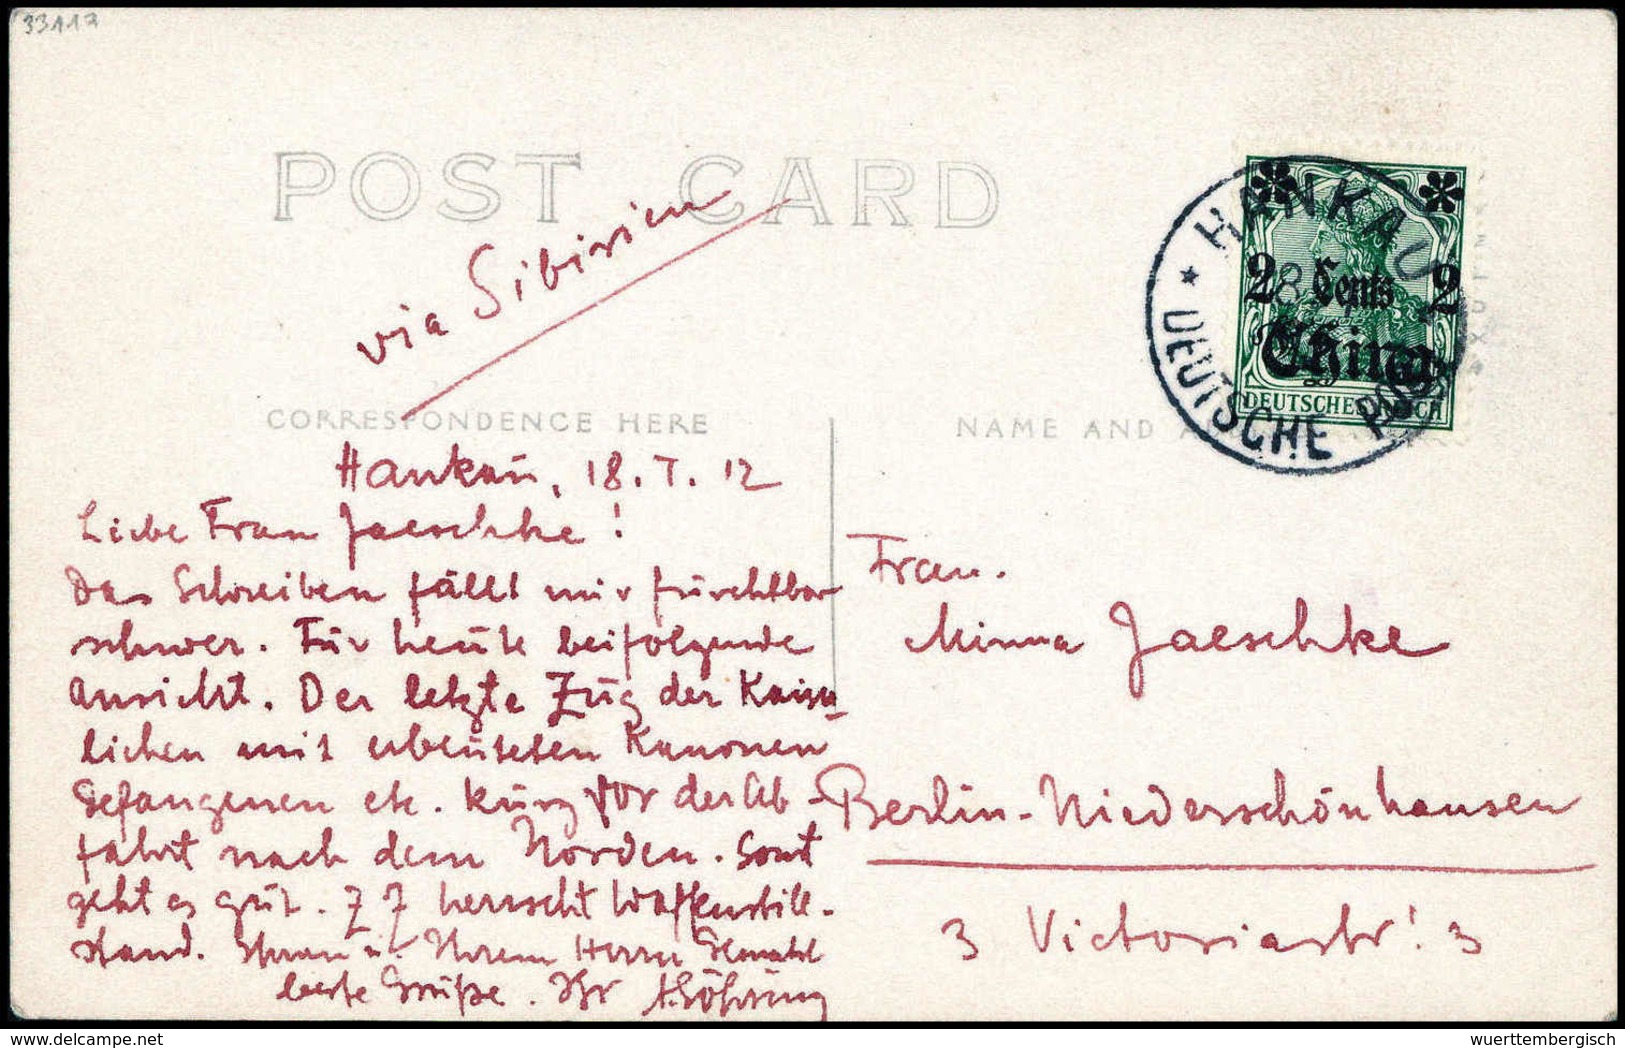 33117
POST CARD
via Sibirien
CORRESPONDENCE HERE
NAME AND A
HANKAU
DEUTSCHE POST
2 Cents 2
China
DEUTSCHES REICH
Hankau, 18. I. 12
Liebe Frau Jaeschke!
Das Schreiben fällt mir furchtbar
schwer. Für heute beifolgende
Ansicht. Der letzte Zug der Kaiser-
lichen mit erbeuteten Kanonen
Gefangenen etc. kurz vor der Ab-
fahrt nach dem Norden. Sonst
geht es gut. Z Z herrscht Waffenstill-
stand. Ihnen u. Ihrem Herrn Gemahl
beste Grüße. Ihr
Frau.
Minna Jaeschke
Berlin-Niederschönhausen
3 Victoriastr. 3
wuerttembergisch